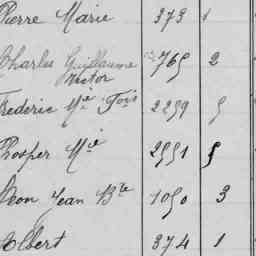 Pierre Marie 373 1
Charles Guillaume 765 2
Victor
Frederic Mie Fois 2259 5
Prosper Mie 2551 5
Leon Jean Bte 1050 3
Albert 374 1